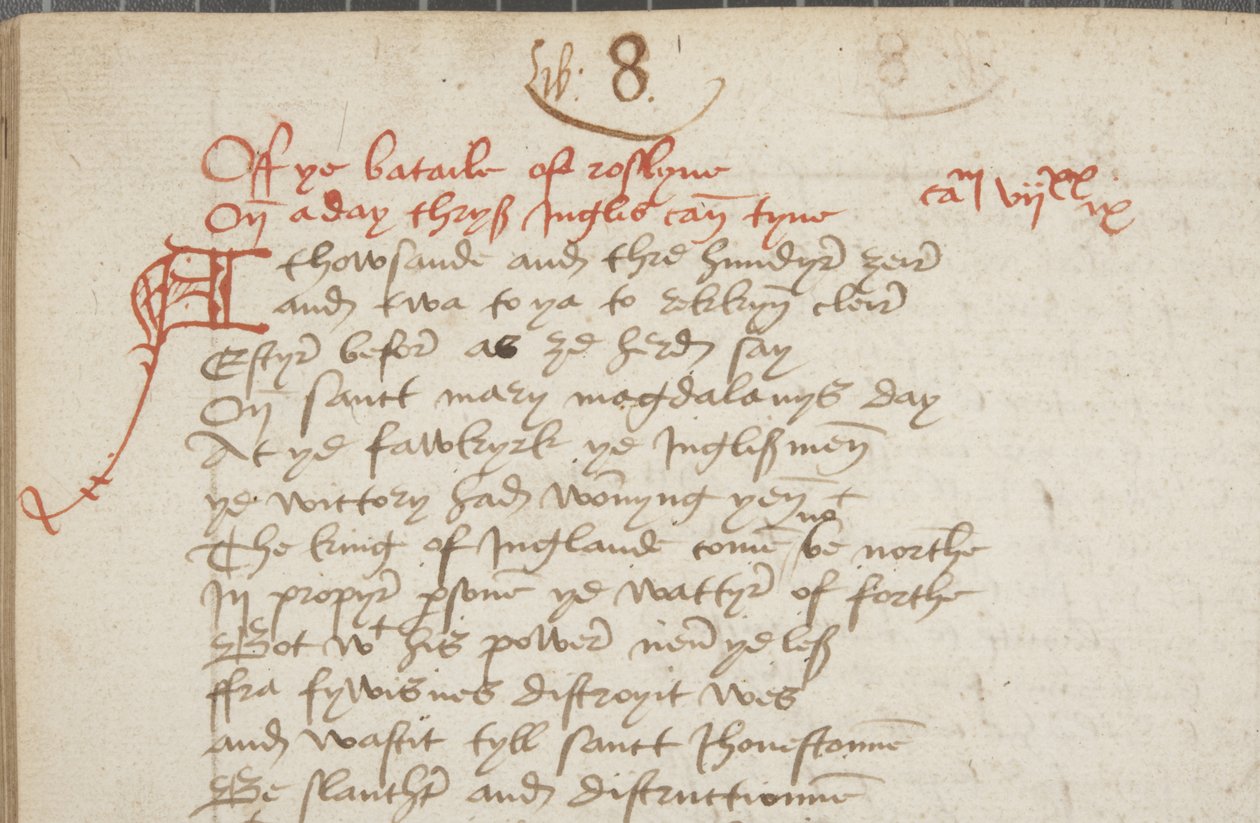 Lib: 8.
Off ye bataile of roslyne
On a day thryß Inglis can tyne
cam vijxx ix
A thowsande and thre hundyr zeir
and twa to ya to rekkyn cleir
Eftyr befor as ze herd say
On sanct mary magdalanys day
At ye fawkyrk ye Inglißmen
ye wittory had wonnyng yen
The king of Inglande come neuer be northe
In propyr psone ye wattyr of forthe
Bot wt his power neuer ye leß
ffra fywisnes distroyit wes
and wastit tyll sanct Jhonestonne
Be slauchtr and distructionne